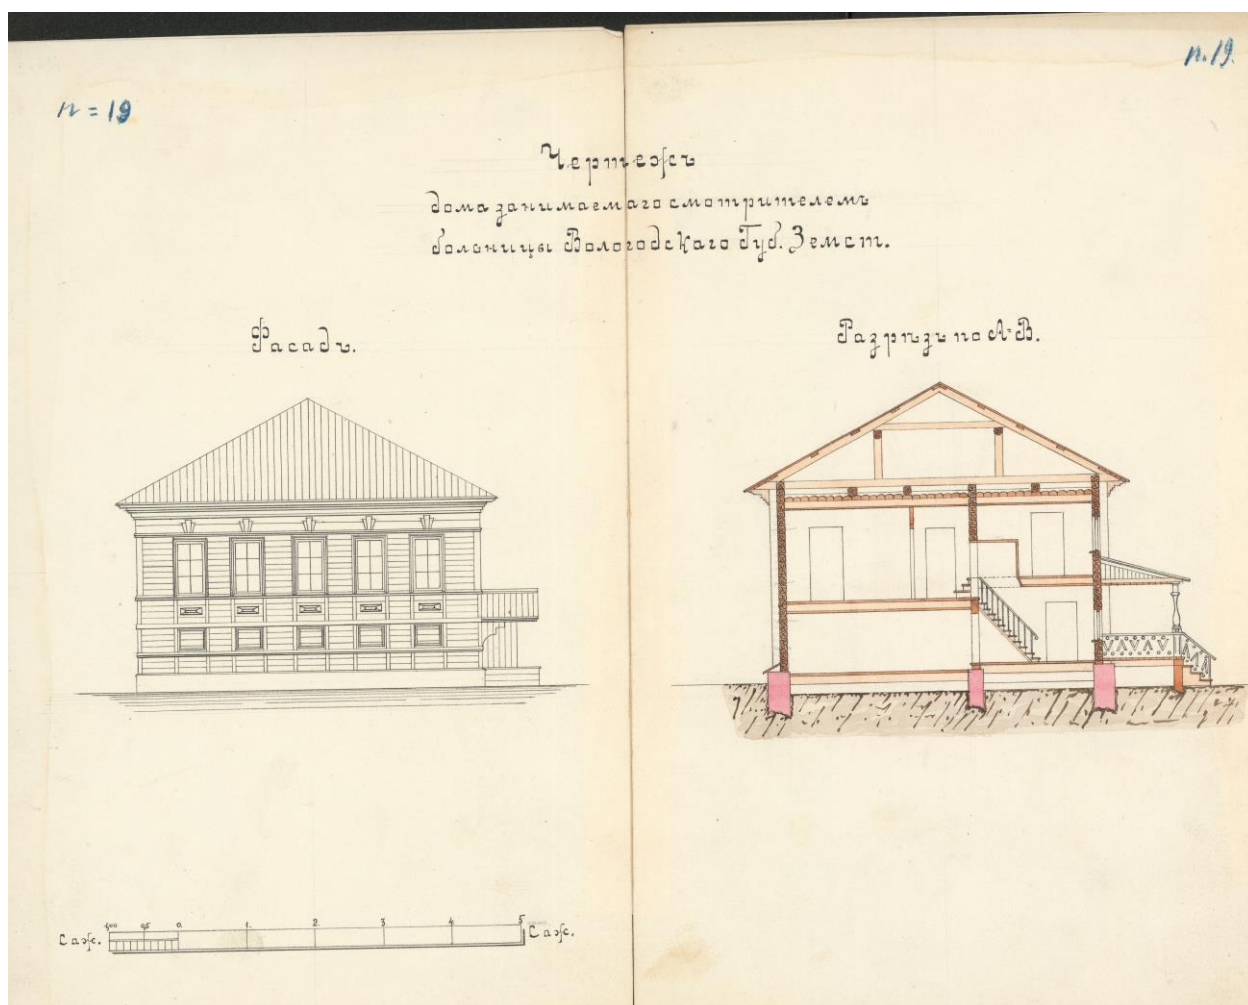 n = 19
n. 19.
Чертежъ
дома занимаемаго смотрителемъ
больницы Вологодскаго Губ. Земст.
Фасадъ.
Разрѣзъ по А-В.
Саж. 1,00 0,5 0. 1. 2. 3. 4. 5 Саж.